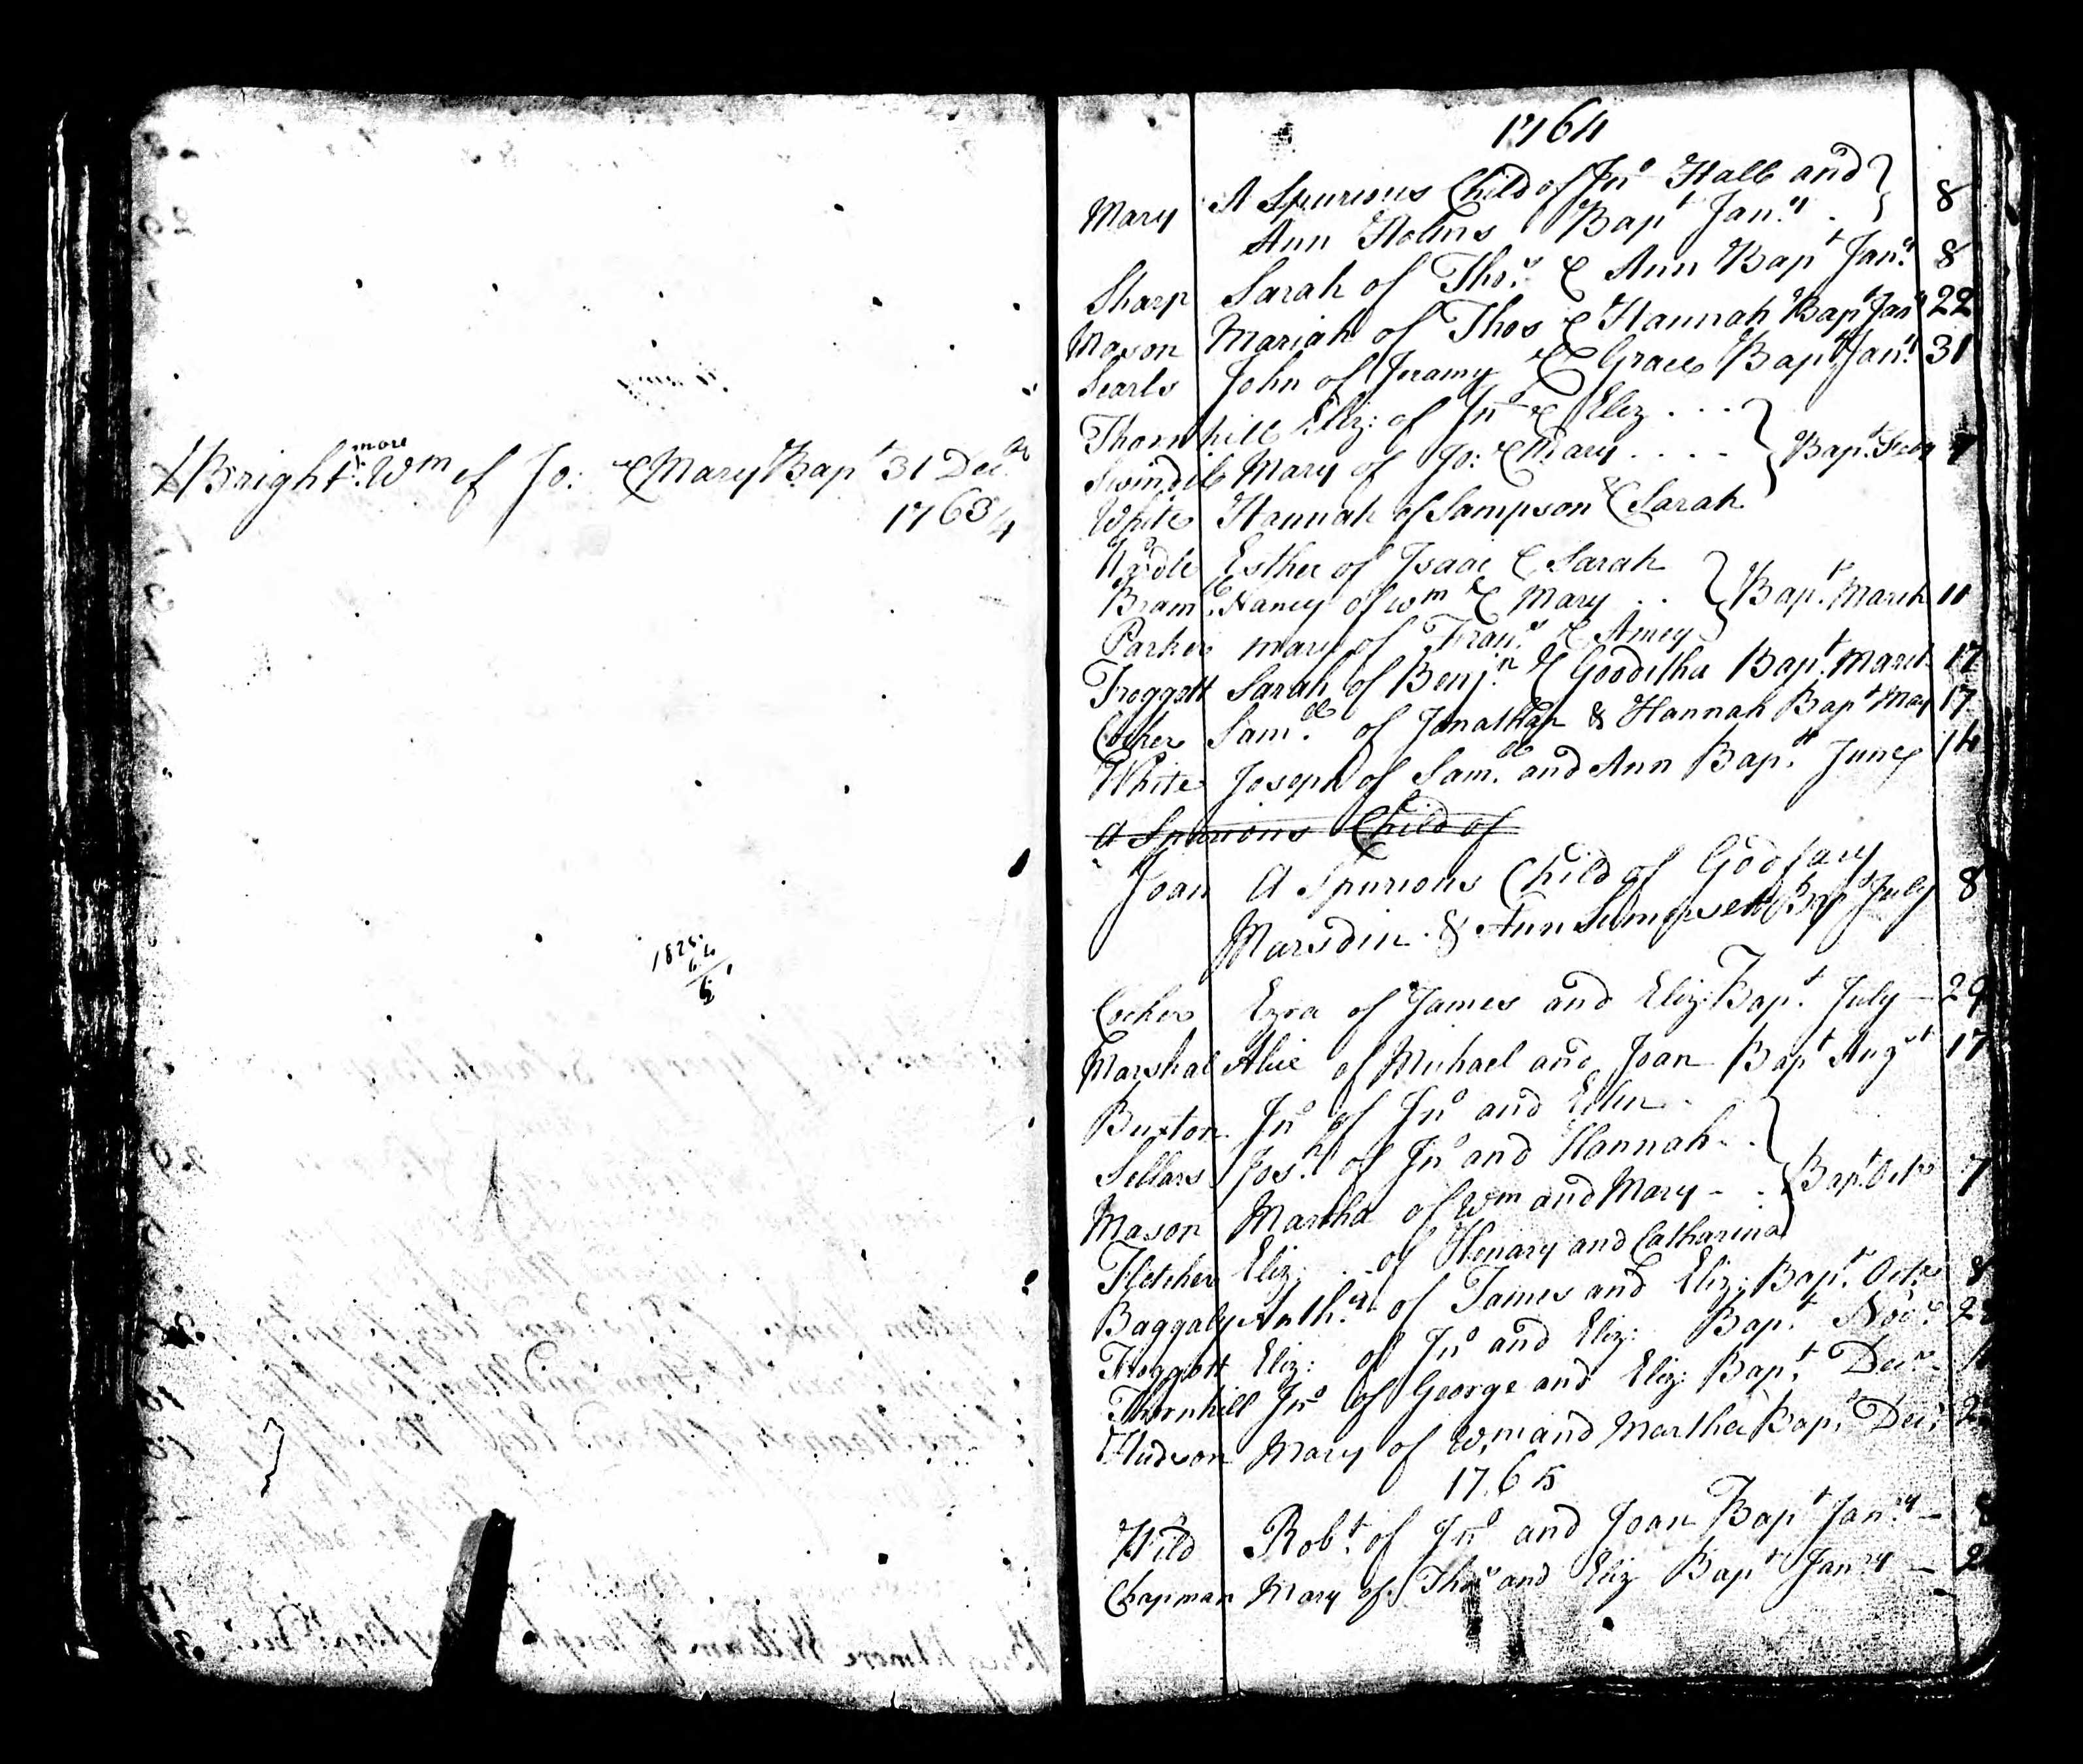 Bright more Wm of Jo: & Mary Bapt 31 Decbr
1763/4
1764
Mary A Spurious Child of Jno Hall and
Ann Holms Bapt Jany 8
Sharp Sarah of Thos & Ann Bapt Jany 8
Mason Mariah of Thos & Hannah Bapt Jany 22
Searls John of Jeramy & Grace Bapt Jany 31
Thornhill Eliz: of Jno & Eliz
Swindel Mary of Jo: & Mary Bapt Feby
White Hannah of Sampson & Sarah
Esther of Isaac & Sarah
Bram Nancy of Wm & Mary Bapt March 11
Parker mary of Frans & Amey
Froggott Sarah of Benjn & Gooditha Bapt March 17
Cocker Samll of Jonathan & Hannah Bapt May 17
White Joseph of Samll and Ann Bapt June 14
A Spurious Child of
Joan A Spurious Child of Godfary
Marsdin & Ann Sumerset Bapt July 8
Cocker Ezra of James and Eliz: Bapt July 29
Marshal Alice of Michael and Joan Bapt Augst 17
Buxton Jno of Jno and Ellin
Sellars Josh of Jno and Hannah
Mason Martha of Wm and Mary Bapt Octr 7
Fletcher Eliz: of Henary and Catharina
Baggaly Anthy of James and Eliz: Bapt Octr 8
Froggott Eliz: of Jno and Eliz: Bapt Novr
Thornhill Jno of George and Eliz: Bapt Decr
Hudson Mary of Wm and Martha Bapt Decr
1765
Wild Robt of Jno and Joan Bapt Jany
Chapman Mary of Thos and Eliz Bapt Jany